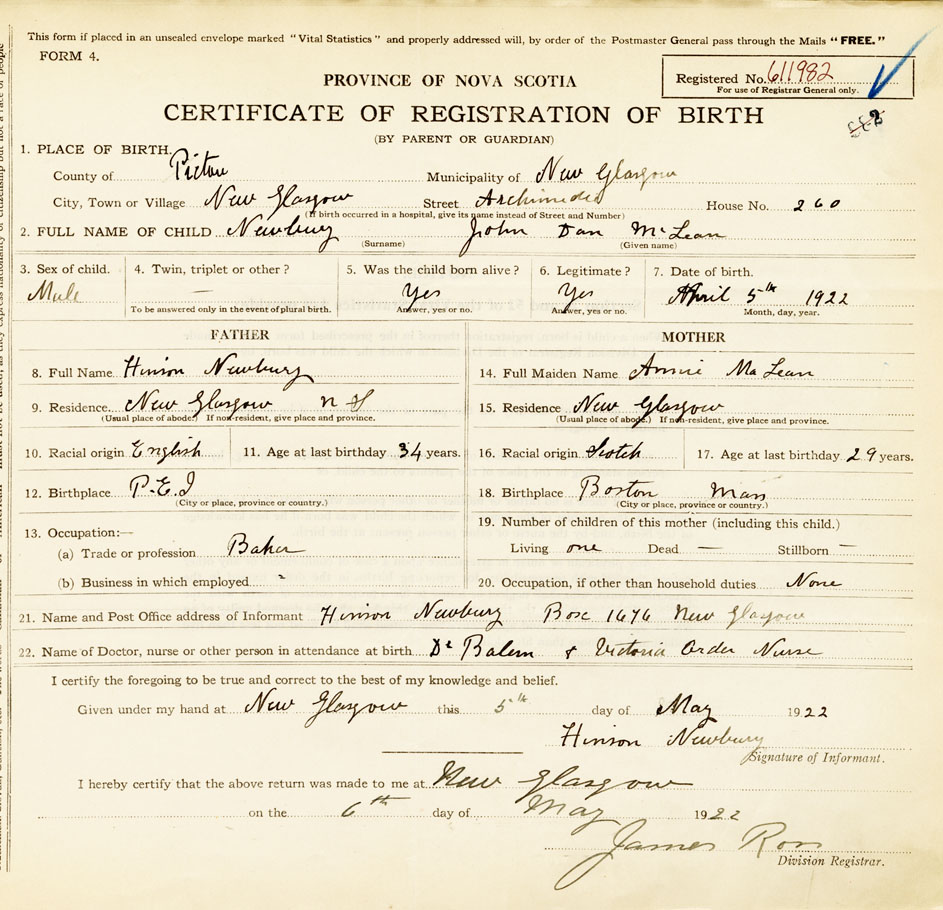 This form if placed in an unsealed envelope marked "Vital Statistics" and properly addressed will, by order of the Postmaster General pass through the Mails "FREE."
FORM 4.
PROVINCE OF NOVA SCOTIA
Registered No. 611982
For use of Registrar General only.
CERTIFICATE OF REGISTRATION OF BIRTH
(BY PARENT OR GUARDIAN)
1. PLACE OF BIRTH.
County of Pictou Municipality of New Glasgow
City, Town or Village New Glasgow Street Archimedes House No. 260
(If birth occurred in a hospital, give its name instead of Street and Number)
2. FULL NAME OF CHILD Newbury John Dan McLean
(Surname) (Given name)
3. Sex of child. 4. Twin, triplet or other? 5. Was the child born alive? 6. Legitimate? 7. Date of birth.
Male — Yes Yes April 5th 1922
To be answered only in the event of plural birth. Answer, yes or no. Answer, yes or no. Month, day, year.
FATHER MOTHER
8. Full Name Hinson Newbury 14. Full Maiden Name Annie McLean
9. Residence New Glasgow N S 15. Residence New Glasgow
(Usual place of abode.) If non-resident, give place and province. (Usual place of abode.) If non-resident, give place and province.
10. Racial origin English 11. Age at last birthday 34 years. 16. Racial origin Scotch 17. Age at last birthday 29 years.
12. Birthplace P.E.I 18. Birthplace Boston Mass
(City or place, province or country.) (City or place, province or country.)
13. Occupation:— 19. Number of children of this mother (including this child.)
(a) Trade or profession Baker Living one Dead — Stillborn —
(b) Business in which employed 20. Occupation, if other than household duties None
21. Name and Post Office address of Informant Hinson Newbury Box 1676 New Glasgow
22. Name of Doctor, nurse or other person in attendance at birth Dr Balem & Victoria Order Nurse
I certify the foregoing to be true and correct to the best of my knowledge and belief.
Given under my hand at New Glasgow this 5th day of May 1922
Hinson Newbury
Signature of Informant.
I hereby certify that the above return was made to me at New Glasgow
on the 6th day of May 1922
James Ross
Division Registrar.